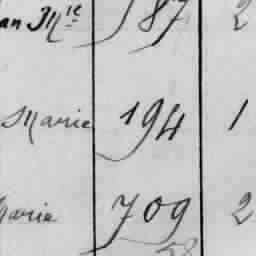 an Mie 187 2
Marie 194 1
Marie 709 2
58